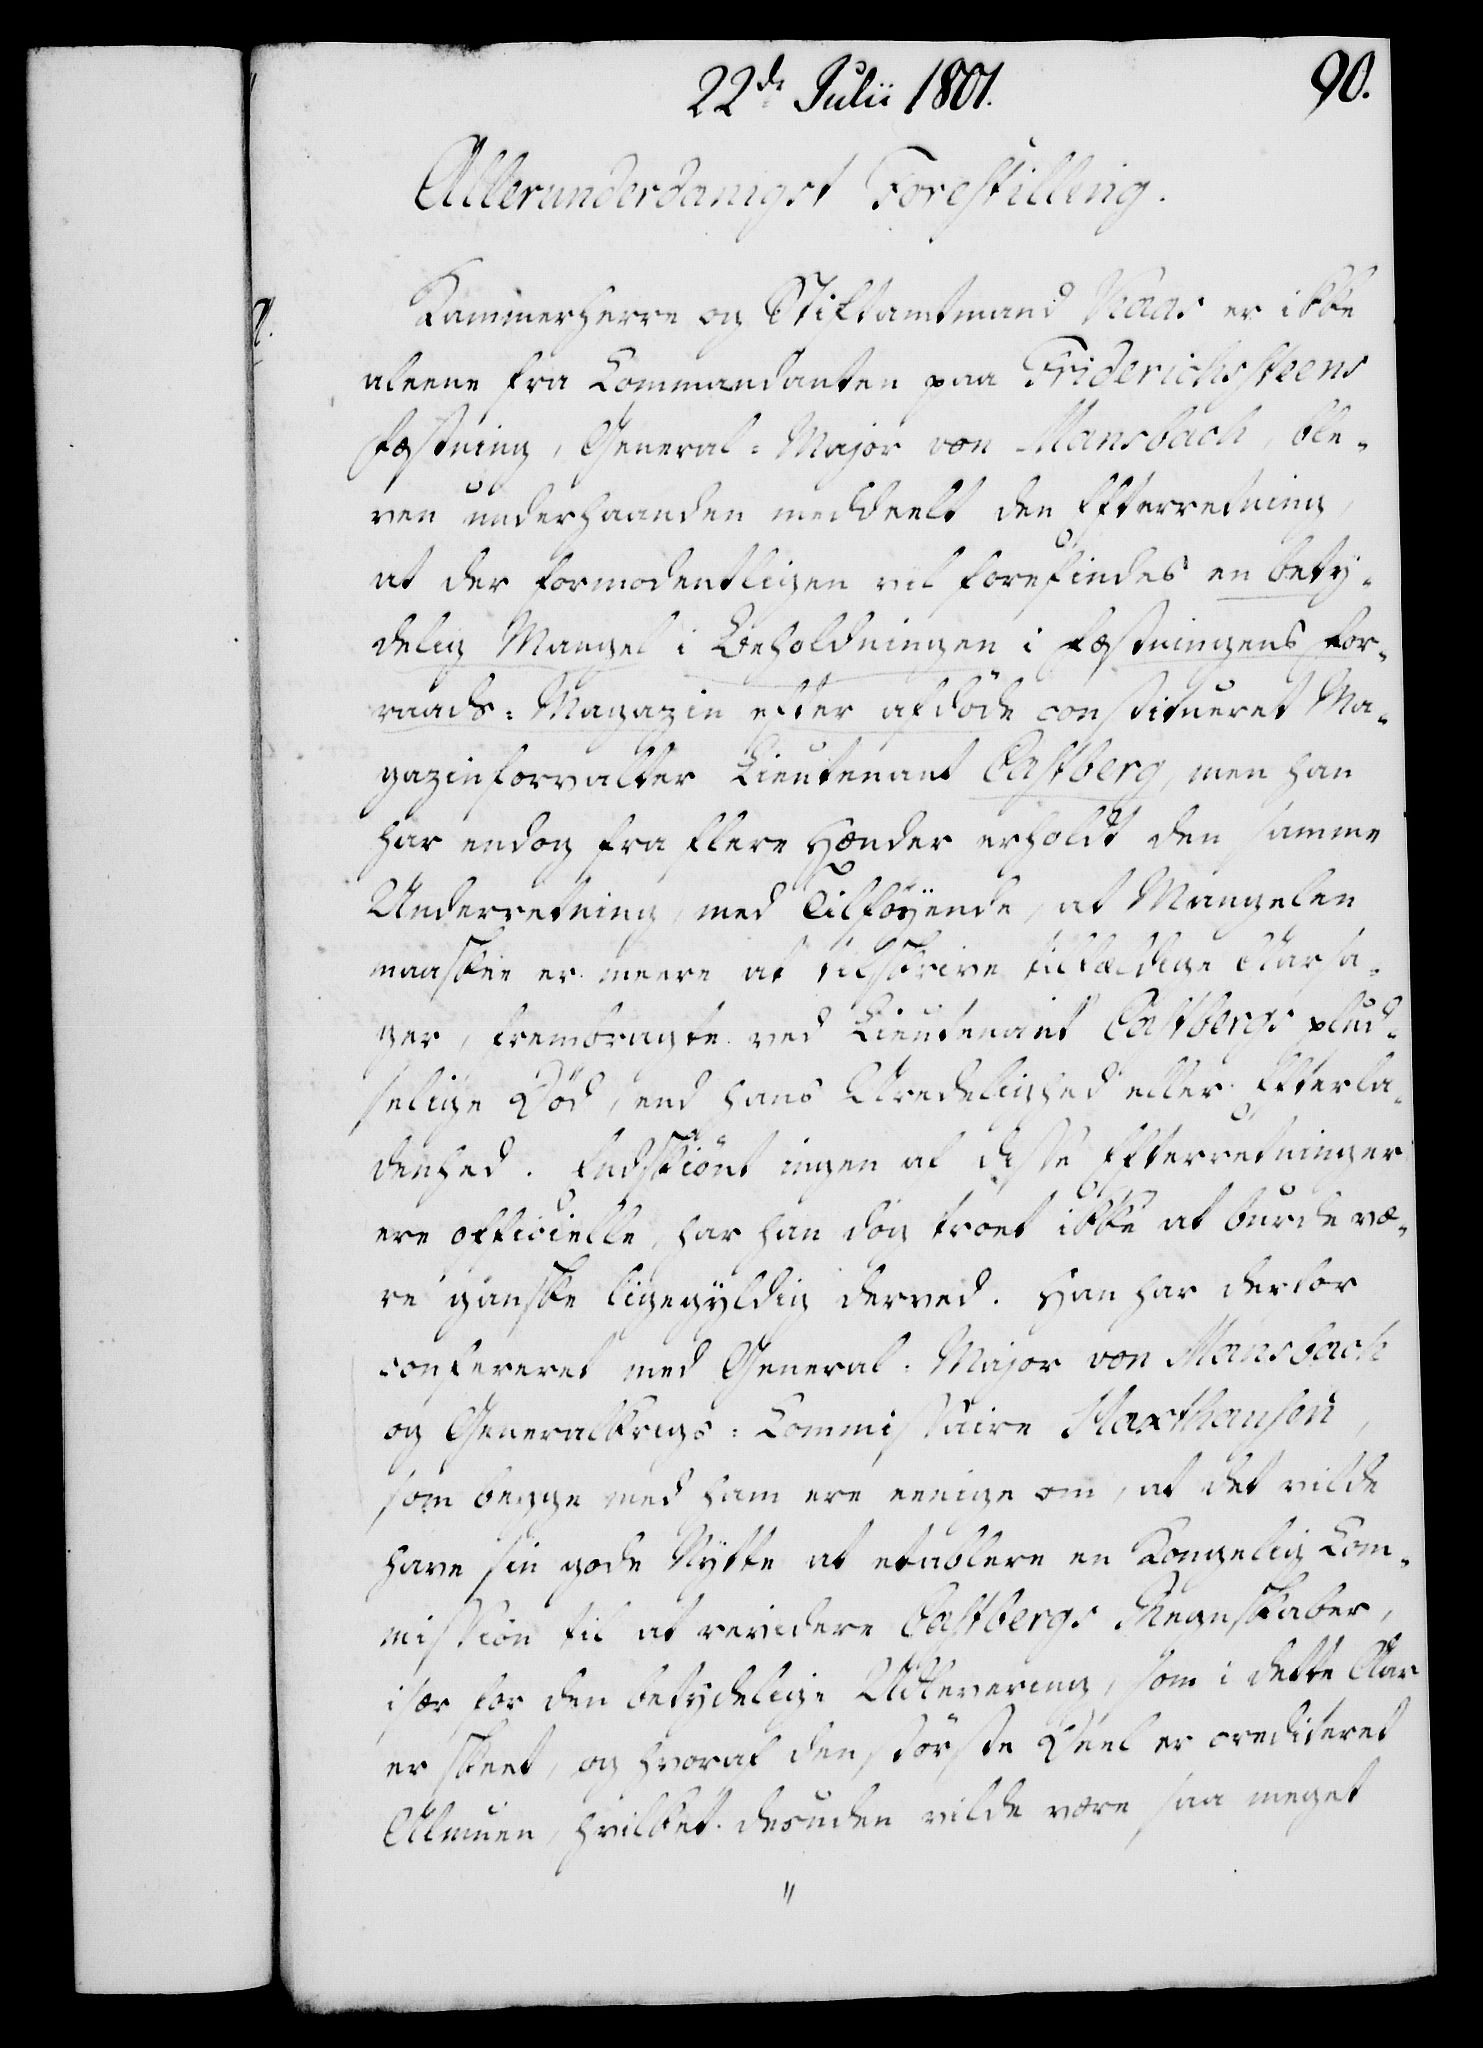 22de Julii 1801.
90.
Allerunderdanigst Forestilling.
Kammerherre og Stiftamtmand Kaas er ikke
aleene fra Commandanten paa Friderichssteens
Fæstning, General-Major von Mansbach, ble-
ven underhaanden meddeelt den Efterretning,
at der formodentligen vil forefindes en bety-
delig Mangel i Beholdningen i Fæstningens For-
raads-Magazin efter afdöde constitueret Ma-
gazinforvalter Lieutenant Castberg, men han
har endog fra flere Hænder erholdt den samme
Underretning, med Tilföyende, at Mangelen
maaskee er meere at tilskrive tilfældige Aarsa-
ger, frembragte ved Lieutenant Castbergs plud-
selige Död, end hans Uredelighed eller Efterla-
denhed. Endskiönt ingen af disse Efterretninger
ere officielle, har han dog troet ikke at burde væ-
re ganske ligegyldig derved. Han har derfor
confereret med General-Major von Mansbach
og Generalkrigs-Commissaire Haxthausen,
som begge med ham ere eenige om, at det vilde
have sin gode Nytte at etablere en Kongelig Com-
mission til at revidere Castbergs Regnskaber,
især for den betydelige Udlevering, som i dette Aar
er skeet, og hvoraf den störste Deel er crediteret
Almuen, hvilket desuden vilde være saa meget
"